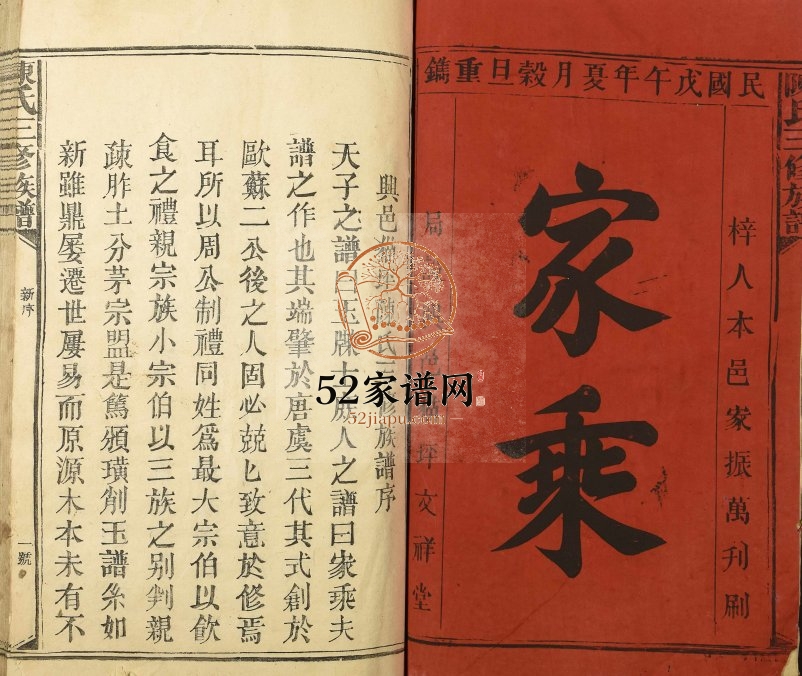 民國戊午年夏月穀旦重鐫
梓人本邑家振萬刊刷
家乘
局 坪文祥堂
陳氏三修族譜
興邑 坪陳氏三修族譜序
天子之譜曰玉牒士族人之譜曰家乘夫
譜之作也其端肇於唐虞三代其式創於
歐蘇二公後之人固必兢匕致意於修焉
耳所以周公制禮同姓爲最大宗伯以飲
食之禮親宗族小宗伯以三族之别判親
疎胙土分茅宗盟是篤頒璜削玉譜糸如
新雖鼎屢遷世屢易而原源木本未有不
陳氏三修族譜
新序
一號
52家谱网
52jiapu.com